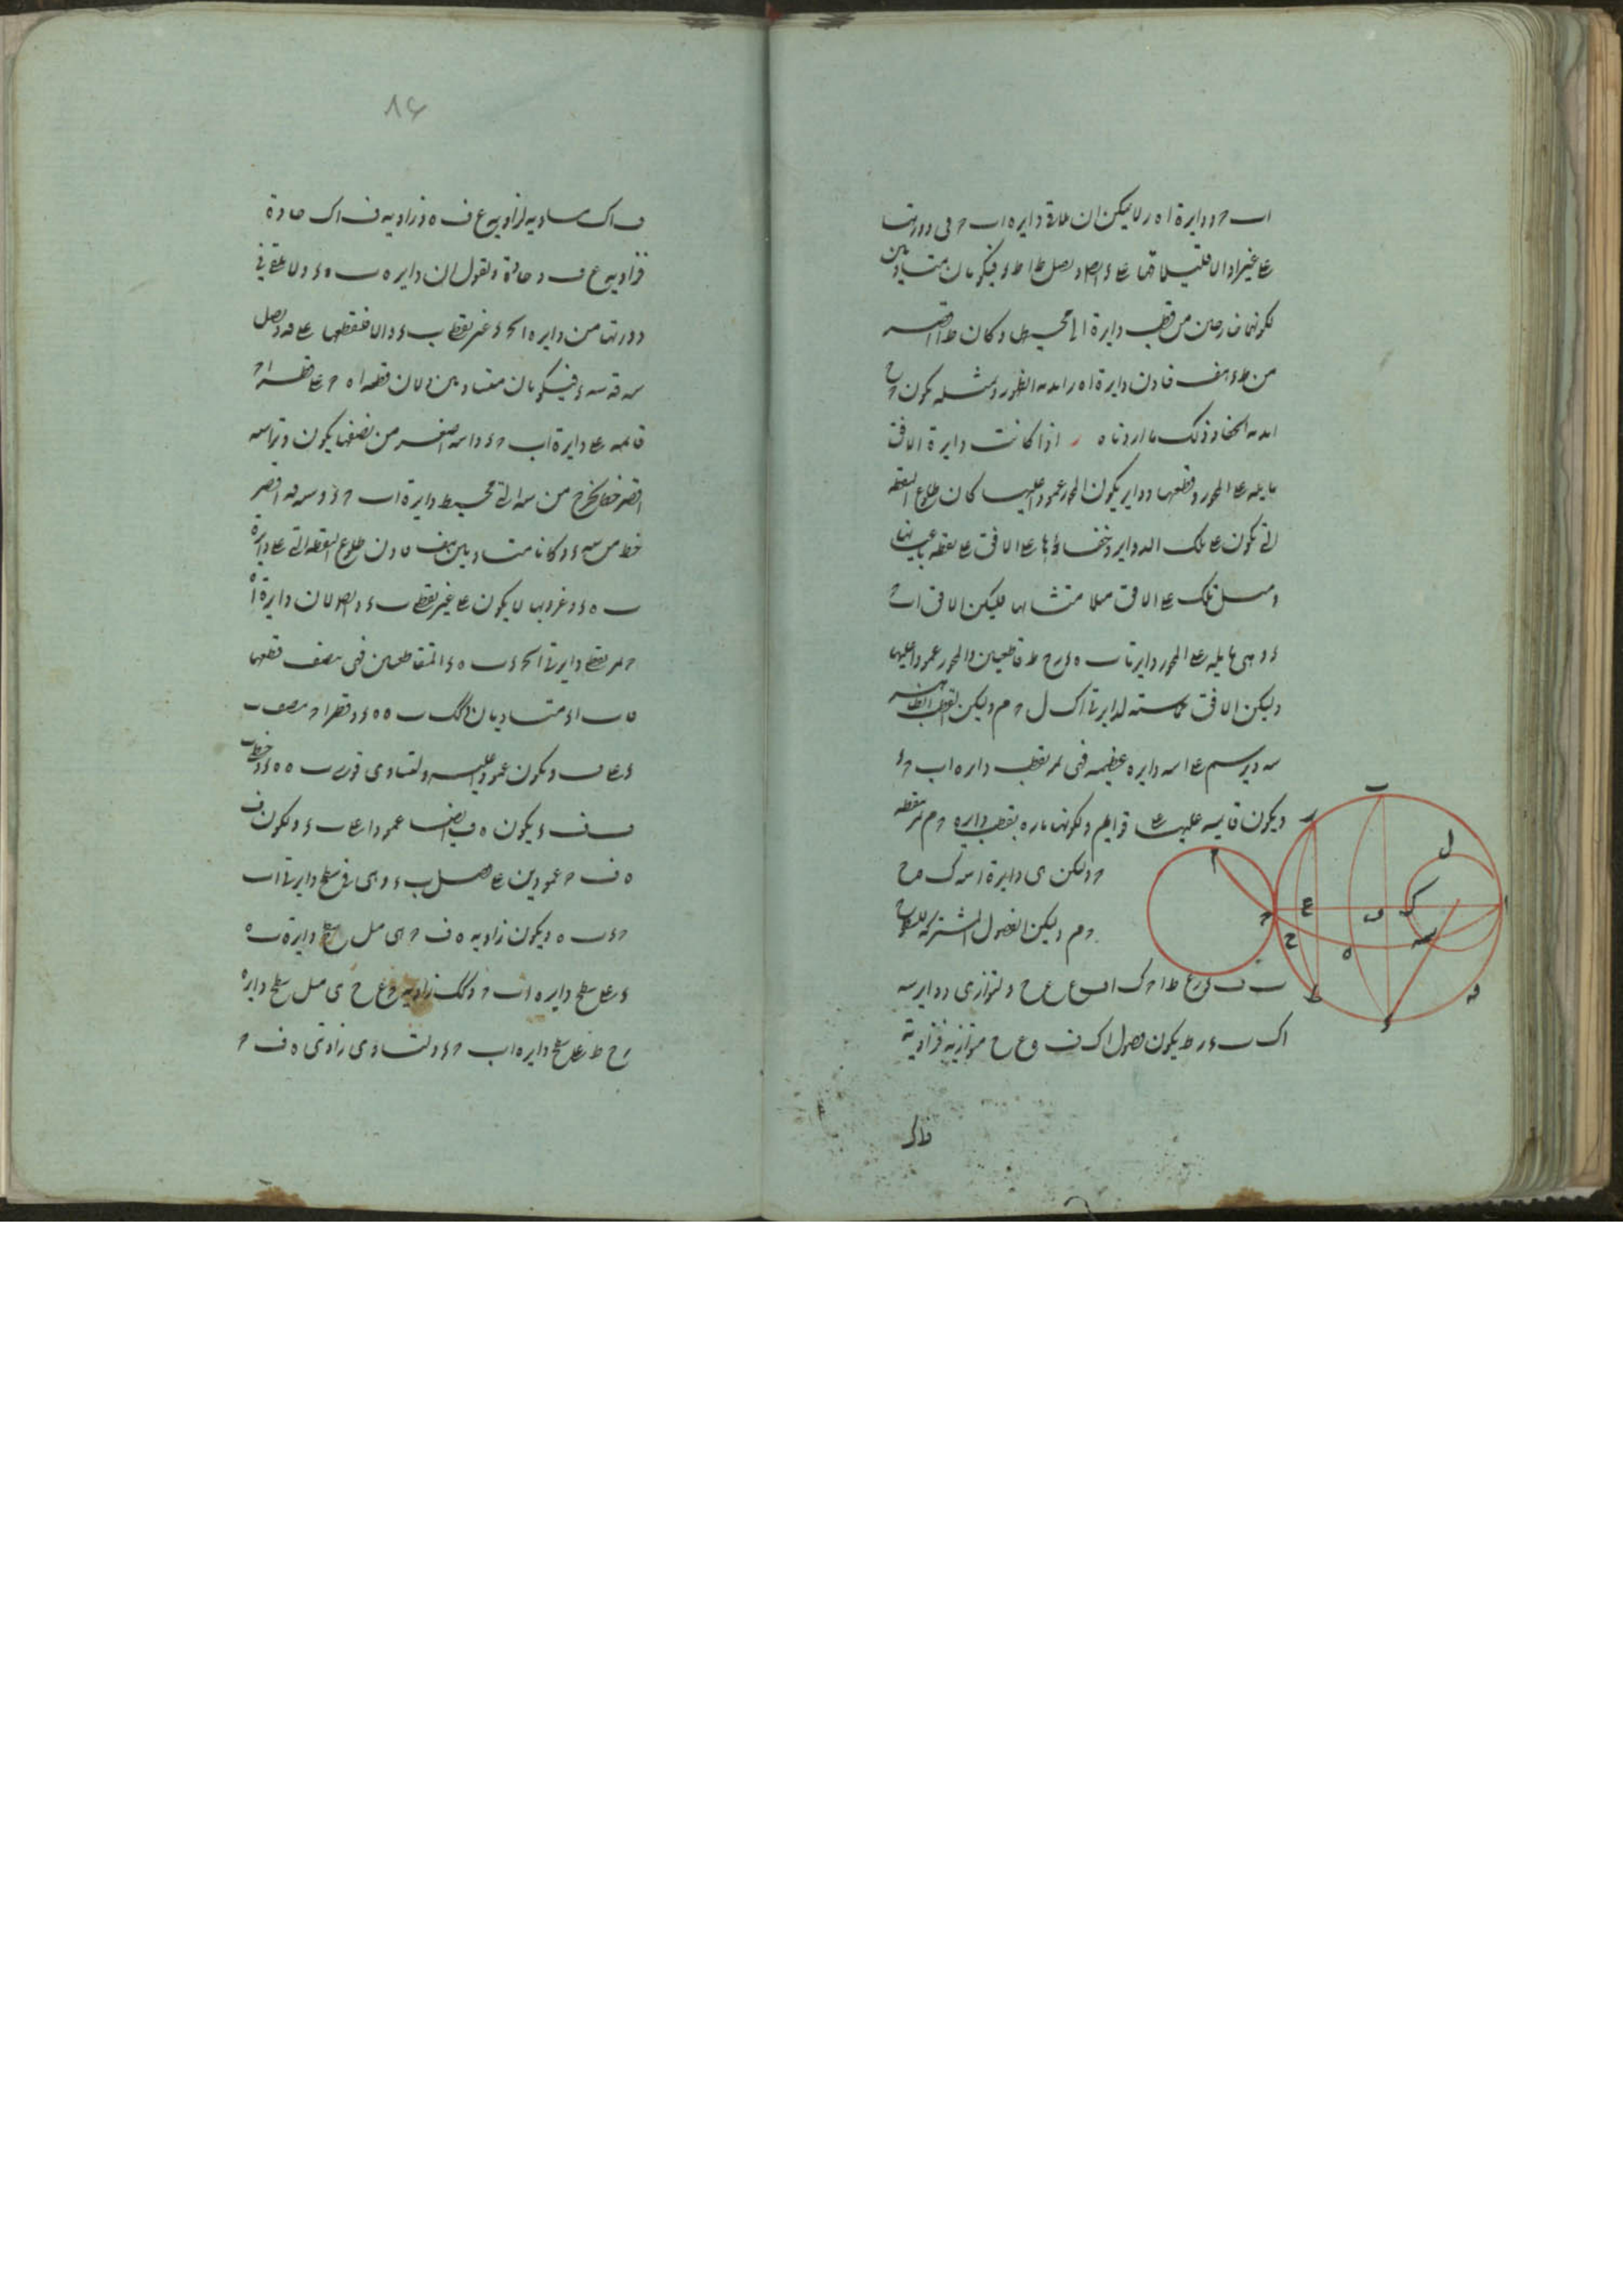 اب ح د دايرة اه ر لا يمكن ان تلاقى دايرة اب ح فى دورتها
على غير ا والا فليلاقها على ء ايضا و نصل ط ا ط ء فيكونان متساويين
لكونهما خارجين من قطب دايرة ا الى محيطها و كان ط ا اقصر
من ط ء هف فاذن دايرة اه ر ابدية الظهور و بمثله يكون ح
ابدية الخفا و ذلك ما اردناه ر اذا كانت دايرة الافق
مايلة على المحور و قطعها دواير يكون المحور عمودا عليها كان طلوع النقطة
التى تكون على تلك الدواير و خفاؤها على الافق على نقطة باعيانها
و ميل تلك على الافق ميلا متشابها فليكن الافق اب ح
ء و هى مايلة على المحور و دايرتا ب ه ء ر ح ط قاطعين والمحور عمودا عليها
وليكن الافق مماسة لدايرتى اك ل ح م وليكن القطب الظاهر
سه و يرسم على ا سه دايرة عظيمة فهى تمر بقطب دايرة اب ح ء
و يكون قايمة عليها على قوايم و لكونها مارة بقطب دايرة ح م تمر بنقطة
ح ولكن هى دايرة ا سه ك ه ح
ح م وليكن الفصول المشتركة للسطوح
ب ف ء ر ع ط ا ح ك ا ف ع ع ح و لتوازى دواير سه
اك ب ء ر ط يكون فصول اك ف و ع ح متوازية فزاوية
ف اك
٨٤
ف اك مساوية لزاوية ع ف ه و زاوية ف اك حادة
فزاوية ع ف ه حادة و نقول ان دايرة ه ب ه ء لا تلاقى فى
دورتها من دايرة اب ح ء غير نقطتى ب ء والا فتقطعها على فه و نصل
سه فه سه ء فيكونان متساويين و لان قطعة ا ه ح على قطر ا ح
قايمة على دايرة اب ح ء و ا سه اصغر من نصفها يكون وتر ا سه
اقصر خط يخرج من سه الى محيط دايرة اب ح ء و سه فه اقصر
خط من سه ء و كانا متساويين هف فاذن طلوع النقطة التى على دايرة
ب ه ء و غروبها لا يكون على غير نقطتى ب ء و ايضا لان دايرة ا ه
ح تمر بقطبى دايرتى اب ح ء ب ه ء المتقاطعين فهى تنصف قطعها
فاب ا ء متساويان و كك ب ه ه ء و قطر ا ح ينصف ب
ء على ف و يكون عمودا عليه و لتساوى قوسى ب ه ه ء و خطى ب
ف ف ء يكون ه ف ايضا عمودا على ب ء و لكون ف
ه ف ح عمودين على فصل ب ء و هى فى سطح دايرتى اب
ح ء ب ه و يكون زاوية ه ف ح هى ميل سطح دايرة ب ه
ء على سطح دايرة اب ح و كك زاوية ح ع ح هى ميل سطح دايرة
ر ح ط على سطح دايرة اب ح ء و لتساوى زاوتى ه ف ح